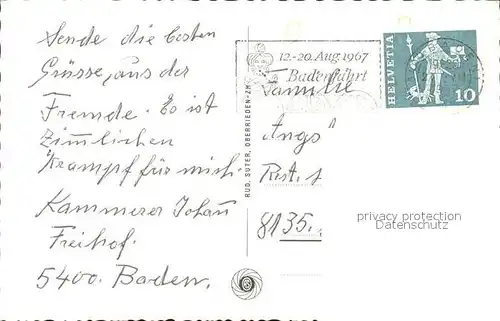 Sende die besten
Grüsse, aus der
Fremde. Es ist
Zimlichen
Krampf für mich.
Kammerer Johan
Freihof.
5400. Baden.
RUD. SUTER, OBERRIEDEN-ZH
12.-20. Aug. 1967
Badenfahrt
HELVETIA
10
Familie
Angs
Rest.
8135.
privacy protection
Datenschutz